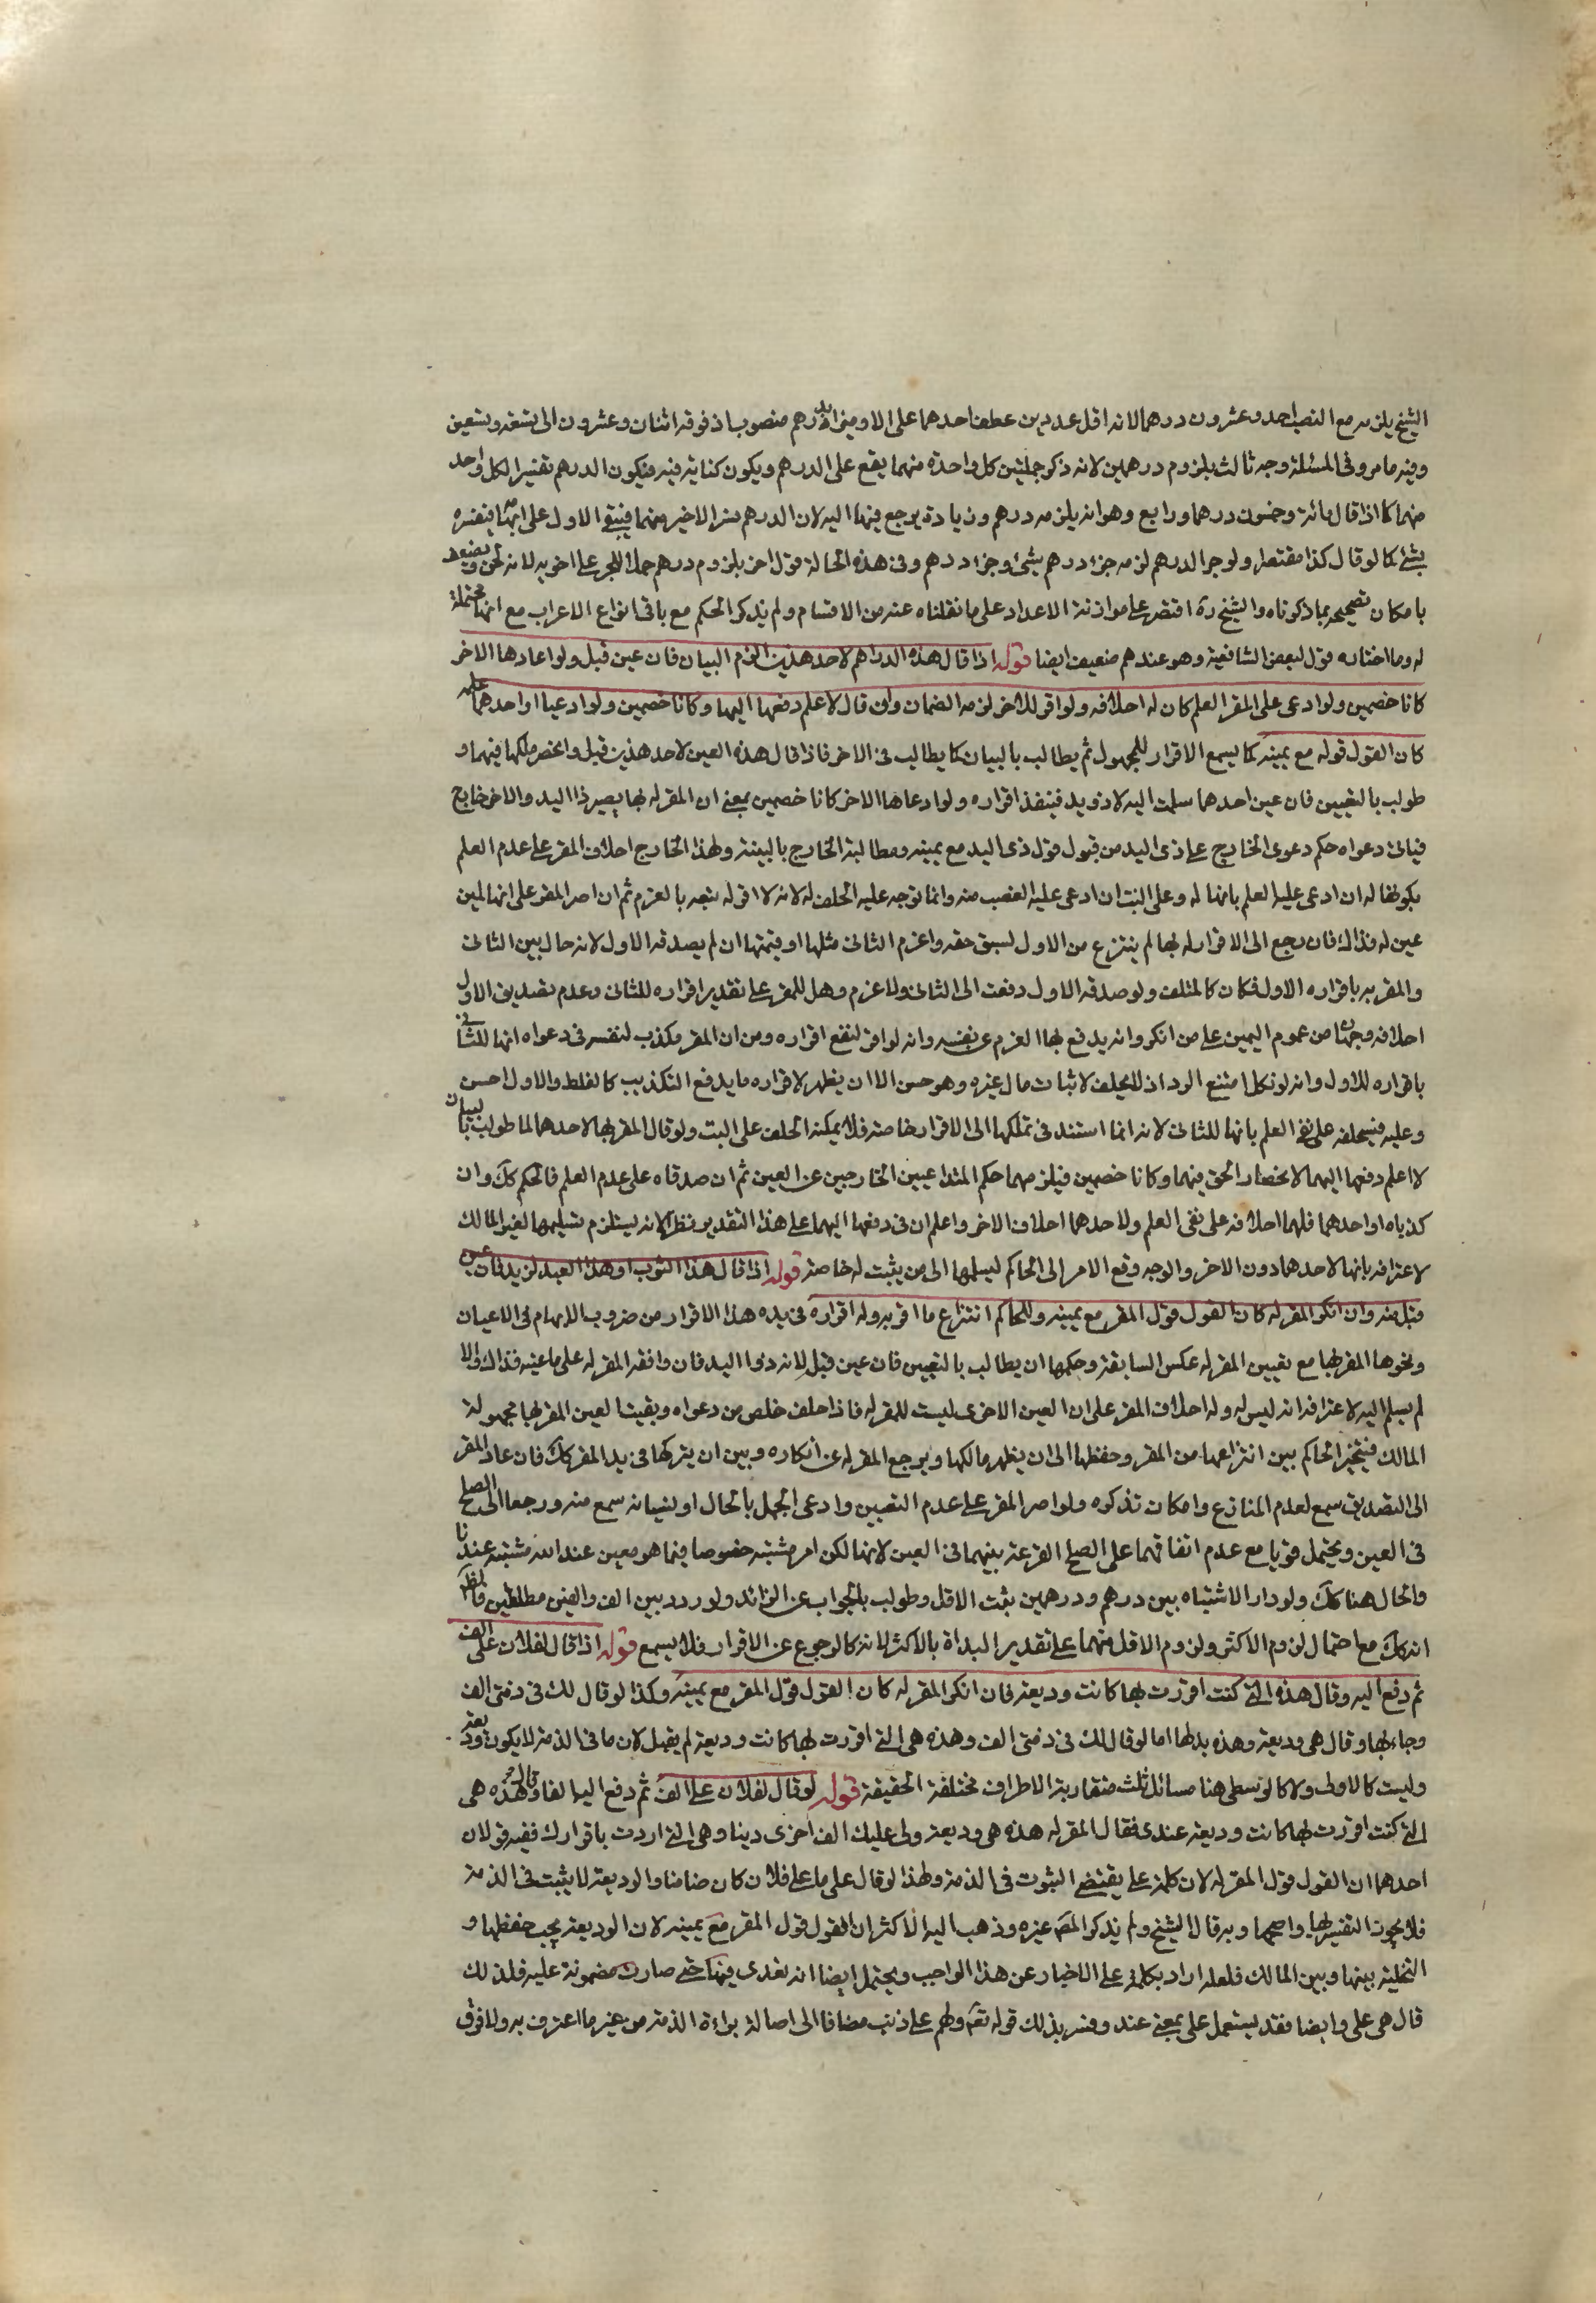 الشيخ يلزمه مع النصب احد وعشرون درهما لانه اقل عددين عطف احدهما على الاخر وميزا بدرهم منصوب اذ فوقه اثنان وعشرون الى تسعة وتسعين
وفيه ما مر وفى المسئلة وجه ثالث بلزوم درهمين لانه ذكر جملتين كل واحدة منهما يقع على الدرهم ويكون كناية فيه فيكون الدرهم تفسيرا لكل واحد
منهما كما اذا قال مائة وخمسون درهما ورابع وهو انه يلزمه درهم وزيادة يرجع فيها اليه لان الدرهم يفسر الاخير منهما فيبقى الاول على ابهامه فيفسره
بشئ كما لو قال كذا مقتصرا ولو جر الدرهم لزمه جزء درهم بشئ وجزء درهم وفى هذه الحالة قول اخر بلزوم درهم حملا للجر على اخويه لانه لحن ويضعف
بامكان تصحيحه بما ذكرناه والشيخ ره اقتصر على موازنة الاعداد على ما نقلناه عنه من الاقسام ولم يذكر الحكم مع باقى انواع الاعراب مع انها محتملة
له وما اختاره قول لبعض الشافعية وهو عندهم ضعيف ايضا قوله اذا قال هذه الدراهم لاحد هذين الزم البيان فان عين قبل ولو ادعاها الاخر
كانا خصمين ولو ادعى على المقر العلم كان له احلافه ولو اقر للاخر لزمه الضمان وان قال لا اعلم دفعها اليهما وكانا خصمين ولو ادعيا او احدهما علمه
كان القول قوله مع يمينه كما يسمع الاقرار للمجهول ثم يطالب بالبيان كما يطالب فى الاخر فاذا قال هذه العين لاحد هذين قبل وانحصر ملكها فيهما و
طولب بالتعيين فان عين احدهما سلمت اليه لانه ذو يد فينفذ اقراره ولو ادعاها الاخر كانا خصمين بمعنى ان المقر له بها يصير ذا اليد والاخر خارج
فياتى دعواه حكم دعوى الخارج على ذى اليد من قبول قول ذى اليد مع يمينه ومطالبة الخارج بالبينة ولهذا الخارج احلاف المقر على عدم العلم
بكونها له ان ادعى عليه العلم بانها له وعلى البت ان ادعى عليه الغصب منه وانما توجه عليه الحلف له لانه لو اقر له تبعه بالغرم ثم ان اصر المقر على انها لمن
عين له فذاك فان رجع الى الاقرار له بها لم ينتزع من الاول لسبق حقه واغرم الثانى مثلها او قيمتها ان لم يصدقه الاول لانه حال بين الثانى
والمقر به باقراره الاول فكان كالمتلف ولو صدقه الاول دفعت الى الثانى ولا غرم وهل للمقر على تقدير اقراره للثانى وعدم تصديق الاول
احلافه وجهان من عموم اليمين على من انكر وانه يدفع بها الغرم عن نفسه وانه لو اقر لنفع اقراره ومن ان المقر مكذب لنفسه فى دعواه انها للثانى
باقراره للاول وانه لو نكل امتنع الرد اذ لا يحلف لاثبات مال غيره وهو حسن الا ان يظهر لاقراره ما يدفع التكذيب كالغلط والاول احسن
وعليه فيحلفه على نفى العلم بانها للثانى لانه انما استند فى تملكها الى الاقرار خاصة فلا يمكنه الحلف على البت ولو قال المقر بها لاحدهما لما طولب بالبيان
لا اعلم دفعها اليهما لانحصار الحق فيهما وكانا خصمين فيلزمهما حكم المتداعيين الخارجين عن العين ثم ان صدقاه على عدم العلم فالحكم كك وان
كذباه او احدهما فلهما احلافه على نفى العلم ولاحدهما احلاف الاخر واعلم ان فى دفعها اليهما على هذا التقدير نظرا لانه يستلزم تسليمها لغير المالك
لاعترافه بانها لاحدهما دون الاخر والوجه رفع الامر الى الحاكم ليسلمها الى من يثبت له خاصة قوله اذا قال هذا الثوب او هذا العبد لزيد فان عين
قبل منه وان انكر المقر له كان القول قول المقر مع يمينه وللحاكم انتزاع ما اقر به وله اقراره فى يده هذا الاقرار من ضروب الابهام فى الاعيان
ونحوها المقر بها مع تعيين المقر له عكس السابقة وحكمها ان يطالب بالتعيين فان عين قبل لانه ذوا اليد فان وافقه المقر له على ما عينه فذاك والا
لم يسلم اليه لاعترافه انه ليس له وله احلاف المقر على ان العين الاخرى ليست للمقر له فاذا حلف خلص من دعواه وبقيت العين المقر بها مجهولة
المالك فيتخير الحاكم بين انتزاعها من المقر وحفظها الى ان يظهر مالكها ويرجع المقر له عن انكاره وبين ان يتركها فى يد المقر كك فان عاد المقر
الى التصديق سمع لعدم المنازع وامكان تذكره ولو اصر المقر على عدم التعيين وادعى الجهل بالحال او نسيانه سمع منه ورجعا الى الصلح
فى العين ويحتمل قويا مع عدم اتفاقهما على الصلح القرعة بينهما فى العين لانها لكل امر مشتبه خصوصا فيما هو معين عند الله مشتبه عندنا
والحال هنا كك ولو دار الاشتباه بين درهم ودرهمين يثبت الاقل وطولب بالجواب عن الزائد ولو ردد بين الف والفين مطلقين فالظاهر
انه كك مع احتمال لزوم الاكثر ولزوم الاقل منهما على تقدير البداة بالاكثر لانه كالرجوع عن الاقرار فلا يسمع قوله اذا قال لفلان على الف
ثم دفع اليه وقال هذه التى كنت اقررت بها كانت وديعة فان انكر المقر له كان القول قول المقر مع يمينه وكذا لو قال لك فى ذمتى الف
وجاء بها وقال هى وديعة وهذه بدلها اما لو قال لك فى ذمتى الف وهذه هى التى اقررت بها كانت وديعة لم يقبل لان ما فى الذمة لا يكون وديعة
وليست كالاولى ولا كالوسطى هنا مسائل ثلث متقاربة الاطراف مختلفة الحقيقة قوله لو قال لفلان على الف ثم دفع اليه الفا وقال هذه هى
التى كنت اقررت بها كانت وديعة عندى فقال المقر له هذه هى وديعة ولى عليك الف اخرى دينا وهى التى اردت باقرارك ففيه قولان
احدهما ان القول قول المقر له لان كلمة على يقتضى الثبوت فى الذمة ولهذا لو قال على ما على فلان كان ضامنا والوديعة لا يثبت فى الذمة
فلا يجوز التفسير بها واصحهما وبه قال الشيخ ولم يذكر المص غيره وذهب اليه الاكثر ان القول قول المقر مع يمينه لان الوديعة يجب حفظها و
التخلية بينها وبين المالك فلعله اراد بكلمة على الاخبار عن هذا الواجب ويحتمل ايضا انه تعدى فيها حتى صارت مضمونة عليه فلذلك
قال هى على وايضا فقد يستعمل على بمعنى عند وفسر بذلك قوله تعم ولهم على ذنب مضافا الى اصالة براءة الذمة من غير ما اعترف به ولا فرق